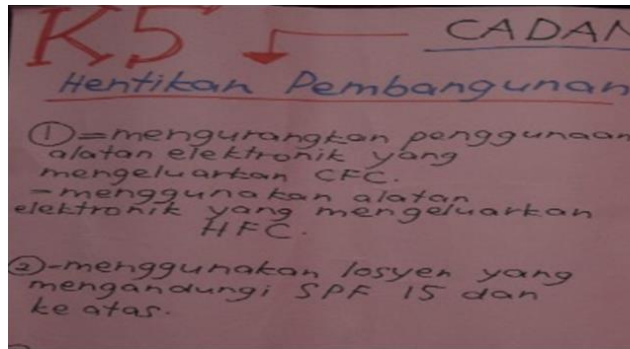 K5 CADAN
Hentikan Pembangunan
① = mengurangkan penggunaan
alatan elektronik yang
mengeluarkan CFC.
- menggunakan alatan
elektronik yang mengeluarkan
HFC.
② - menggunakan losyen yang
mengandungi SPF 15 dan
ke atas.